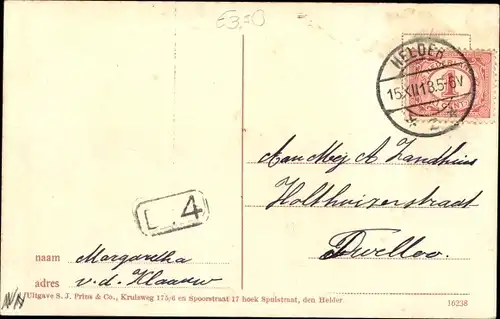 E3,50
HELDER
15.XII.13.5-6V
* 2 *
1
CENT
L 4
Aan Mej A. Zandhuis
Holthuizerstraat
Twelloo.
naam Margaretha
adres v.d. Klaauw
N/H
Uitgave S. J. Prins & Co., Kruisweg 175/6 en Spoorstraat 17 hoek Spuistraat, den Helder
16238